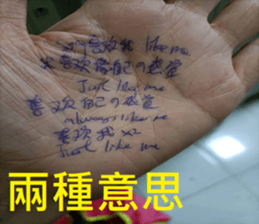 喜欢我 like me
喜欢自己の感觉
Just like me
喜欢自己の感觉
always like me
喜欢我 x2
Just like me
兩種意思